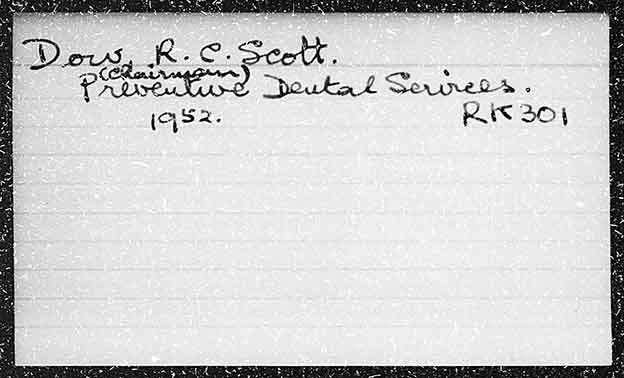 Dow, R. C. Scott.
(Chairman)
Preventive Dental Services.
1952. RK301